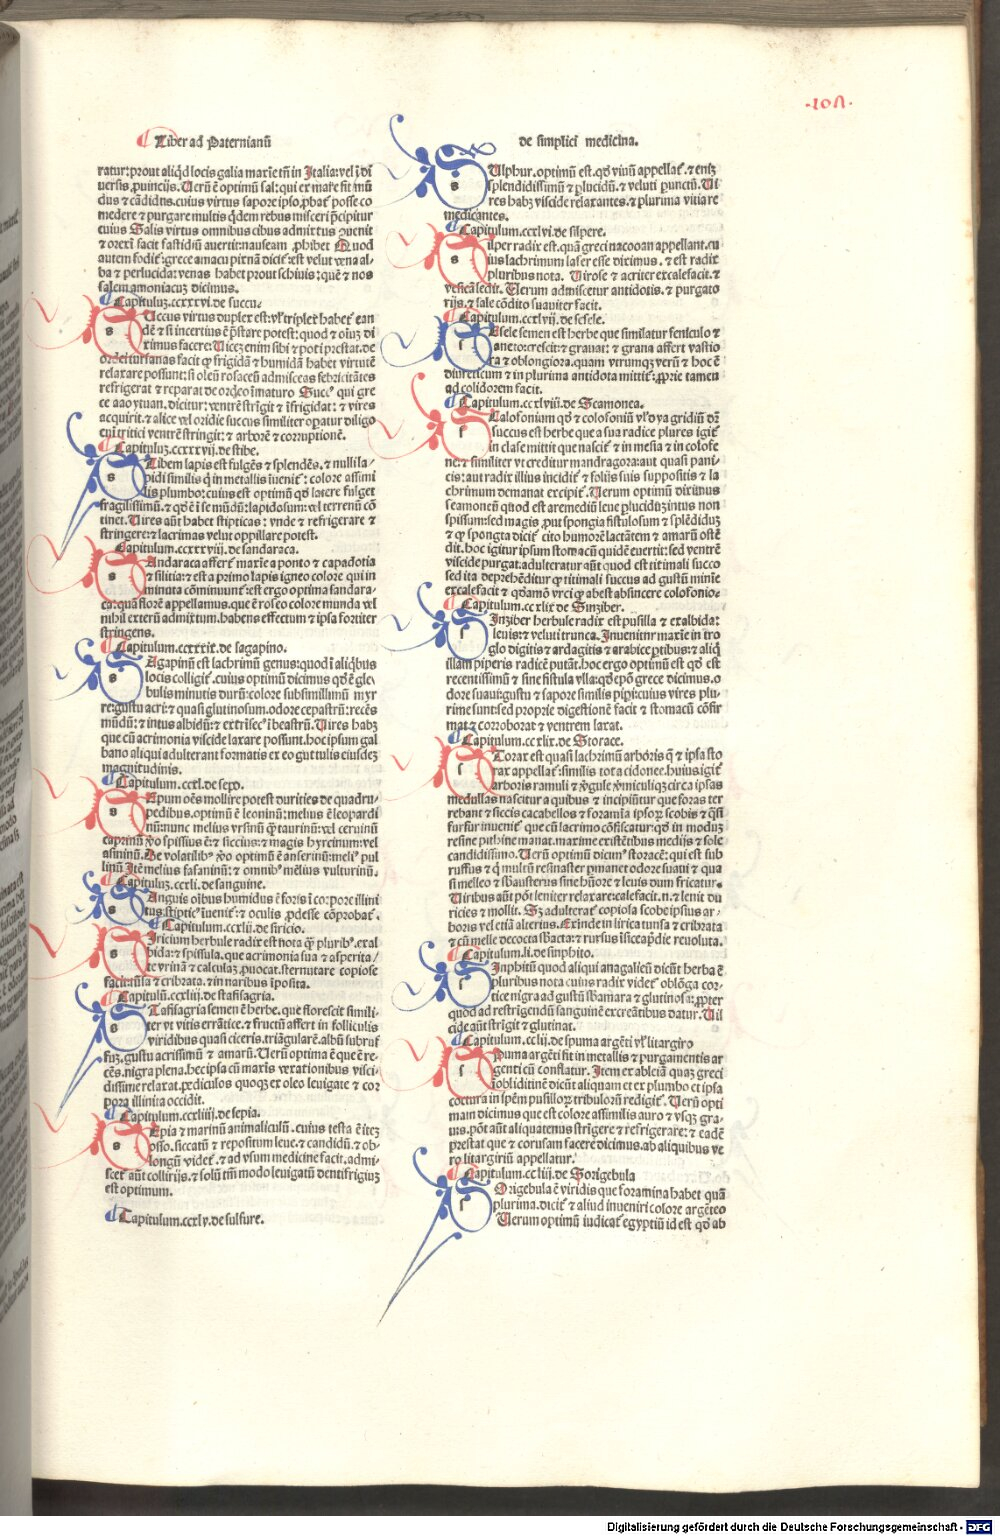 ·101·
Liber ad Paternianũ
de simplici medicina.
ratur: prout aliq̃d locis galia maxĩe tñ in Italia: vel ĩ di
uersis ꝓuincijs. Uerũ ẽ optimũ sal: qui ex mare fit mũ
dus & cãdidus. cuius virtus sapore ipso, posse co
medere & purgare multis q̃dem rebus misceri p̃cipitur
cuius Salis virtus omnibus cibus admixtus
& orexi facit fastidiũ auertit: nauseam ꝓhibet Quod
autem fodiť: grece amacu pixnã diciť: est velut vena al-
ba & perlucida: venas habet prout schiuis: quẽ & nos
salem amoniacuz dicimus.
Capituluz.ccxxxvi. de succu.
S Uccus virtus duplex est: vl̓ triplex habeť ean
dẽ & si incertius ẽ p̃stare potest: quod & oĩuz di
ximus facere: Uicez enim sibi & poti prestat. de
facit frigidã & humidã habet virtutẽ
relaxare possunt: si oleũ rosaceũ admisceas febricitãtes
refrigerat & reparat de ordeo ĩmaturo qui gre
ce dicitur: ventrẽ strĩgit & ĩfrigidat: & vires
acquirit. & alice vel oridie succus similiter opatur diligo
cui tritici ventrẽ stringit: & arborẽ & corruptionẽ.
Capituluz.ccxxxvij. de stibe.
S Tibem lapis est fulgẽs & splendẽs. & nulli la/
pidi similis q̃ in metallis ĩueniť: colore assimi
lis plumbo: cuius est optimũ qd̓ latere fulget
fragilissimũ. & qd̓ ẽ ĩ se mũdũ: lapidosum: vel terrenũ cõ
tinet. Uires aũt habet stipticas: vnde & refrigerare &
stringere: & lacrimas velut oppillare potest.
Capitulum.ccxxxviij. de sandaraca.
S Andaraca afferť maxĩe a ponto & capadotia
& silitia: & est a primo lapis igneo colore qui in
minuta cõminuunť: est ergo optima sandara-
ca: quã florẽ appellamus. que ẽ roseo colore munda vel
nihil exterũ admixtum. habens effectum & ipsa fortiter
stringens.
Capitulum.ccxxxix. de sagapino.
S Agapinũ est lachrimũ genus: quod ĩ aliq̃bus
locis colligiť. cuius optimũ dicimus qd̓ ẽ gle
bulis minutis durũ: colore subsimillimũ myr
re: gustu acri: & quasi glutinosum. odore cepastrũ: recẽs
mũdũ: & intus albidũ: & extrĩsecˀ Uires habz
que cũ acrimonia viscide laxare possunt. hoc ipsum gal
bano aliqui adulterant formatis ex eo guttulis eiusdez
magnitudinis.
Capitulum.ccxl. de sepo.
S Epum oẽs mollire potest durities de quadru/
pedibus. optimũ ẽ leoninũ: melius ẽ leopardi
nũ: nunc melius vrsinũ ꝙ taurinũ: vel ceruinũ
caprinũ spissius ẽ: & siccius: & magis hyrcinum: vel
asininũ. De volatilibˀ optimũ ẽ anserinũ: meliˀ pul
linũ Itẽ melius fasaninũ: & omnibˀ melius vulturinũ.
Capituluz.ccxli. de sanguine.
S Anguis oĩbus humidus ẽ foris ĩ corpore illini
tus: stipticˀ ĩueniť: & oculis ꝓdesse cõprobať.
Capitulum.ccxlij. de siricio.
S Iricium herbule radix est nota ꝙ pluribˀ. exal
bida: & spissula. que acrimonia sua & asperita/
te vrinã & calculaz ꝓuocat. sternutare copiose
facit: tũsa & cribrata. in naribus ĩposita.
Capitulũ.ccxliij. de stafisagria.
S Tafisagria semen ẽ herbe. que florescit simili-
ter vt vitis errãtice. & fructũ affert in folliculis
viridibus quasi ciceris. triãgularẽ. albũ subruf
fuz. gustu acrissimũ & amarũ. Uerũ optima ẽ que ẽ re-
cẽs. nigra plena. hec ipsa cũ maxĩs vexationibus visci-
dissime relaxat. pediculos quoqz ex oleo leuigate & cor
pora illinita occidit.
Capitulum.ccxliiij. de sepia.
S Epia & marinũ animaliculũ. cuius testa ẽ itez
osso. siccatũ & repositum leue. & candidũ. & ob-
longũ videť. & ad vsum medicine facit. admi-
sceť aũt collirijs. & solũ tm̃ modo leuigatũ dentifrigiuz
est optimum.
Capitulum.ccxlv. de sulfure.
S Ulphur. optimũ est. qd̓ viuũ appellať. & enĩz
splendidissimũ & plucidũ. & veluti punctũ. Ui
res habz viscide relaxantes. & plurima vitia re
medicantes.
Capitulum.ccxlvi. de silpere.
S Ilper radix est. quã greci nacooan appellant. cu
ius lachrimum laser esse diximus. & est radix
pluribus nota. Uirose & acriter excalefacit. &
vesicã ledit. Uerum admiscetur antidotis. & purgato
rijs. & sale cõdito suauiter facit.
Capitulum.ccxlvij. de sesele.
S Esele semen est herbe que similatur feniculo &
aneto: crescit: & grauat: & grana affert vastio
ra & oblongiora. quam vtrumqz verũ & hoc ẽ
diureticum & in plurima antidota mittiť: ꝓprie tamen
ad colidorem facit.
Capitulum.ccxlviij. de Scamonea.
S Calofonium qd̓ & colofoniũ vl̓ dyagridiũ dr̃
succus est herbe que a sua radice plures igiť
in clase mittit que nasciť & in mesia & in colofe
ne: & similiter vt creditur mandragora: aut quasi pani-
cis: aut radix illius incidiť & folijs suis suppositis & la
chrimum demanat excipiť. Uerum optimũ diximus
scamoneũ quod est aremediũ leue plucidũ: intus non
spissum: sed magis ꝓut spongia fistulosum & splẽdiduz
& ꝙ spongia diciť cito humorẽ lactãtem & amarũ ostẽ
dit. hoc igitur ipsum stomacũ quidẽ euertit: sed ventrẽ
viscide purgat. adulteratur aũt quod est titimali succo
sed ita deprehẽditur ꝙ titimali succus ad gustũ minĩe
excalefacit & qd̓amõ vrci ꝙ abest absincere colofonio-
Capitulum.ccxlix. de Sinziber.
S Inziber herbule radix est pusilla & exalbida:
leuis: & veluti trunca. Inuenitur maxĩe in tro
glo digitis & ardagitis & arabice ꝑtibus: & aliq̃
illam piperis radicẽ putãt. hoc ergo optimũ est qd̓ est
recentissimũ & sine fistula vlla: qd̓ epõ grece dicimus. o
dore suaui: gustu & sapore similis pipi: cuius vires plu-
rime sunt: sed proprie digestionẽ facit & stomacũ cõfir
mat & corroborat & ventrem laxat.
Capitulum.ccxlix. de Storace.
S Torax est quasi lachrimũ arboris q̃ & ipsa sto
rax appellať: similis tota cidonee. huius igiť
arboris ramuli & circa ipsas
medullas nascitur a quibus & incipiũtur que foras ter
rebant & siccis cacabellos & foramĩa scobis & q̃si
furfur inueniť que cũ lacrimo cõficatur: qd̓ in moduz
resine pithine manat. maxime existẽtibus medijs & sole
candidissimo. Uerũ optimũ dicimˀ storacẽ: qui est sub
ruffus & q̃ multũ resinaster pmanet odore suaui & qua
si melleo & sine hũore & leuis dum fricatur.
Uiribus aũt põt leniter relaxare: calefacit. n. & lenit du
ricies & mollit. Sz adulterať copiosa scobe ipsius ar/
boris vel etiã alterius. Exinde in lirica tunsa & cribrata
& cũ melle decocta & rursus revoluta.
Capitulum.li. de sinphito.
S Inphitũ quod aliqui anagalicũ dicũt herba ẽ
pluribus nota cuius radix videť oblõga cor-
tice nigra ad gustũ & glutinosa: ꝓpter
quod ad restrigendũ sanguinẽ excreãtibus datur. Uil
cide aũt strĩgit & glutinat.
Capitulum.cclij. de spuma argẽti vl̓ litargiro
S Puma argẽti fit in metallis & purgamentis ar
genti cũ conflatur. Item ex ableiã quaz greci
dicũt aliquam et ex plumbo et ipsa
coctura in spẽm pusilloꝝ tribulorũ redigiť. Uerũ opti
mam dicimus que est colore assimilis auro & vsqz gra-
uis. põt aũt aliquatenus strĩgere & refrigerare: & eadẽ
prestat que & corusam facere dicimus. ab aliquibus ve
ro litargiriũ appellatur.
Capitulum.ccliij. de Sorigebula
S Origebula ẽ viridis que foramina habet quã
plurima. diciť & aliud inueniri colore argẽteo
Uerum optimũ iudicať egyptiũ id est qd̓ ab
Digitalisierung gefördert durch die Deutsche Forschungsgemeinschaft - DFG